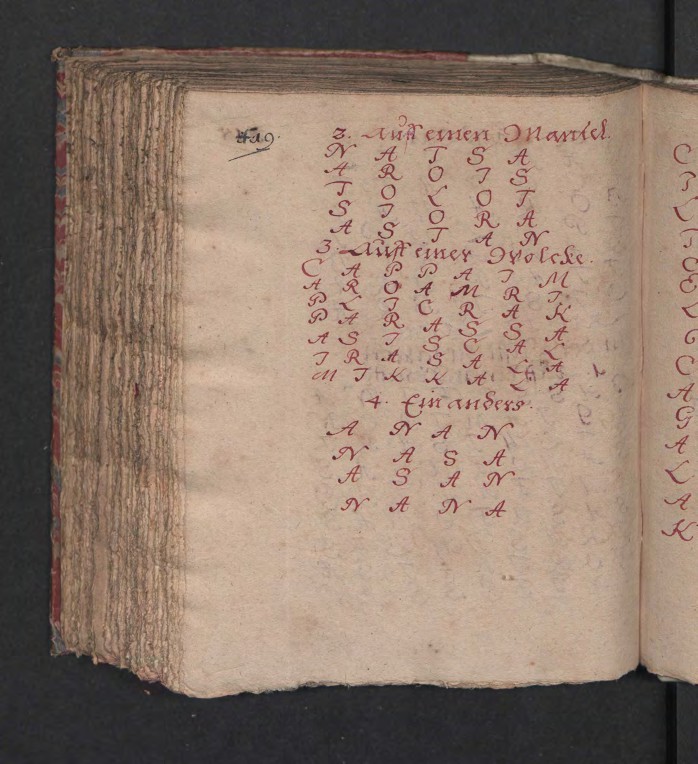 419.
3. Auff einen Mantel.
N A T S A
A R O T S
T O L O T
S T O R A
A S T A N
3. Auff einer Wolcke.
C A P P A T M
A R O A M R T
P L T C R A K
P A R A S S A
A S T S C A L
T R A S A L A
M T K K A L A
4. Ein anders.
A N A N
N A S A
A S A N
N A N A
C
T
L
T
E
L
C
A
G
A
L
A
K